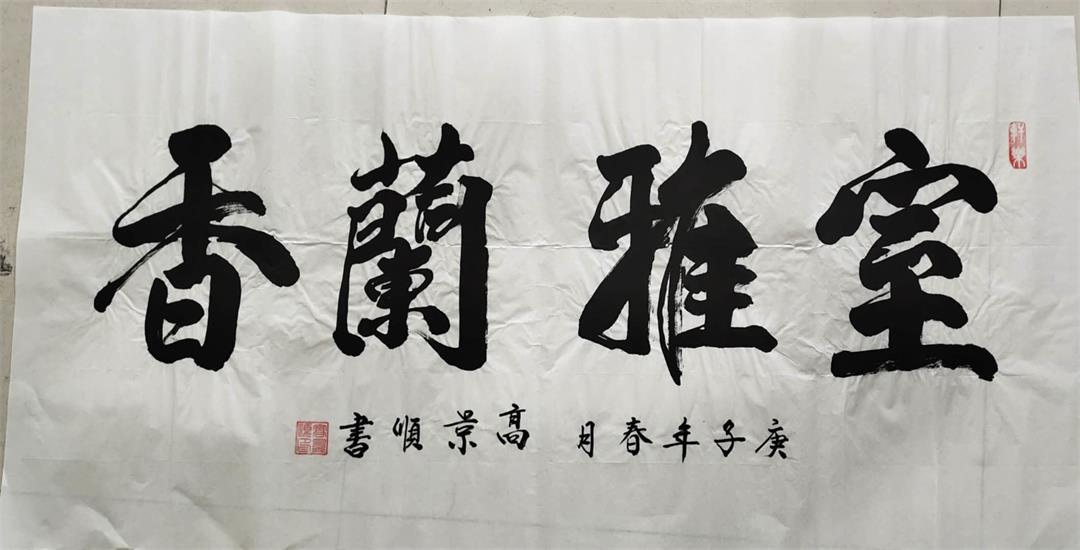 室雅蘭香
庚子年春月 高景順書